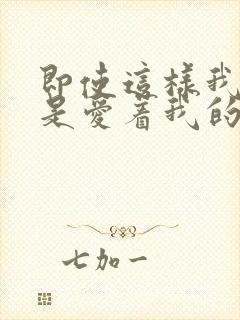 即使這樣我
是愛着我的
七加一